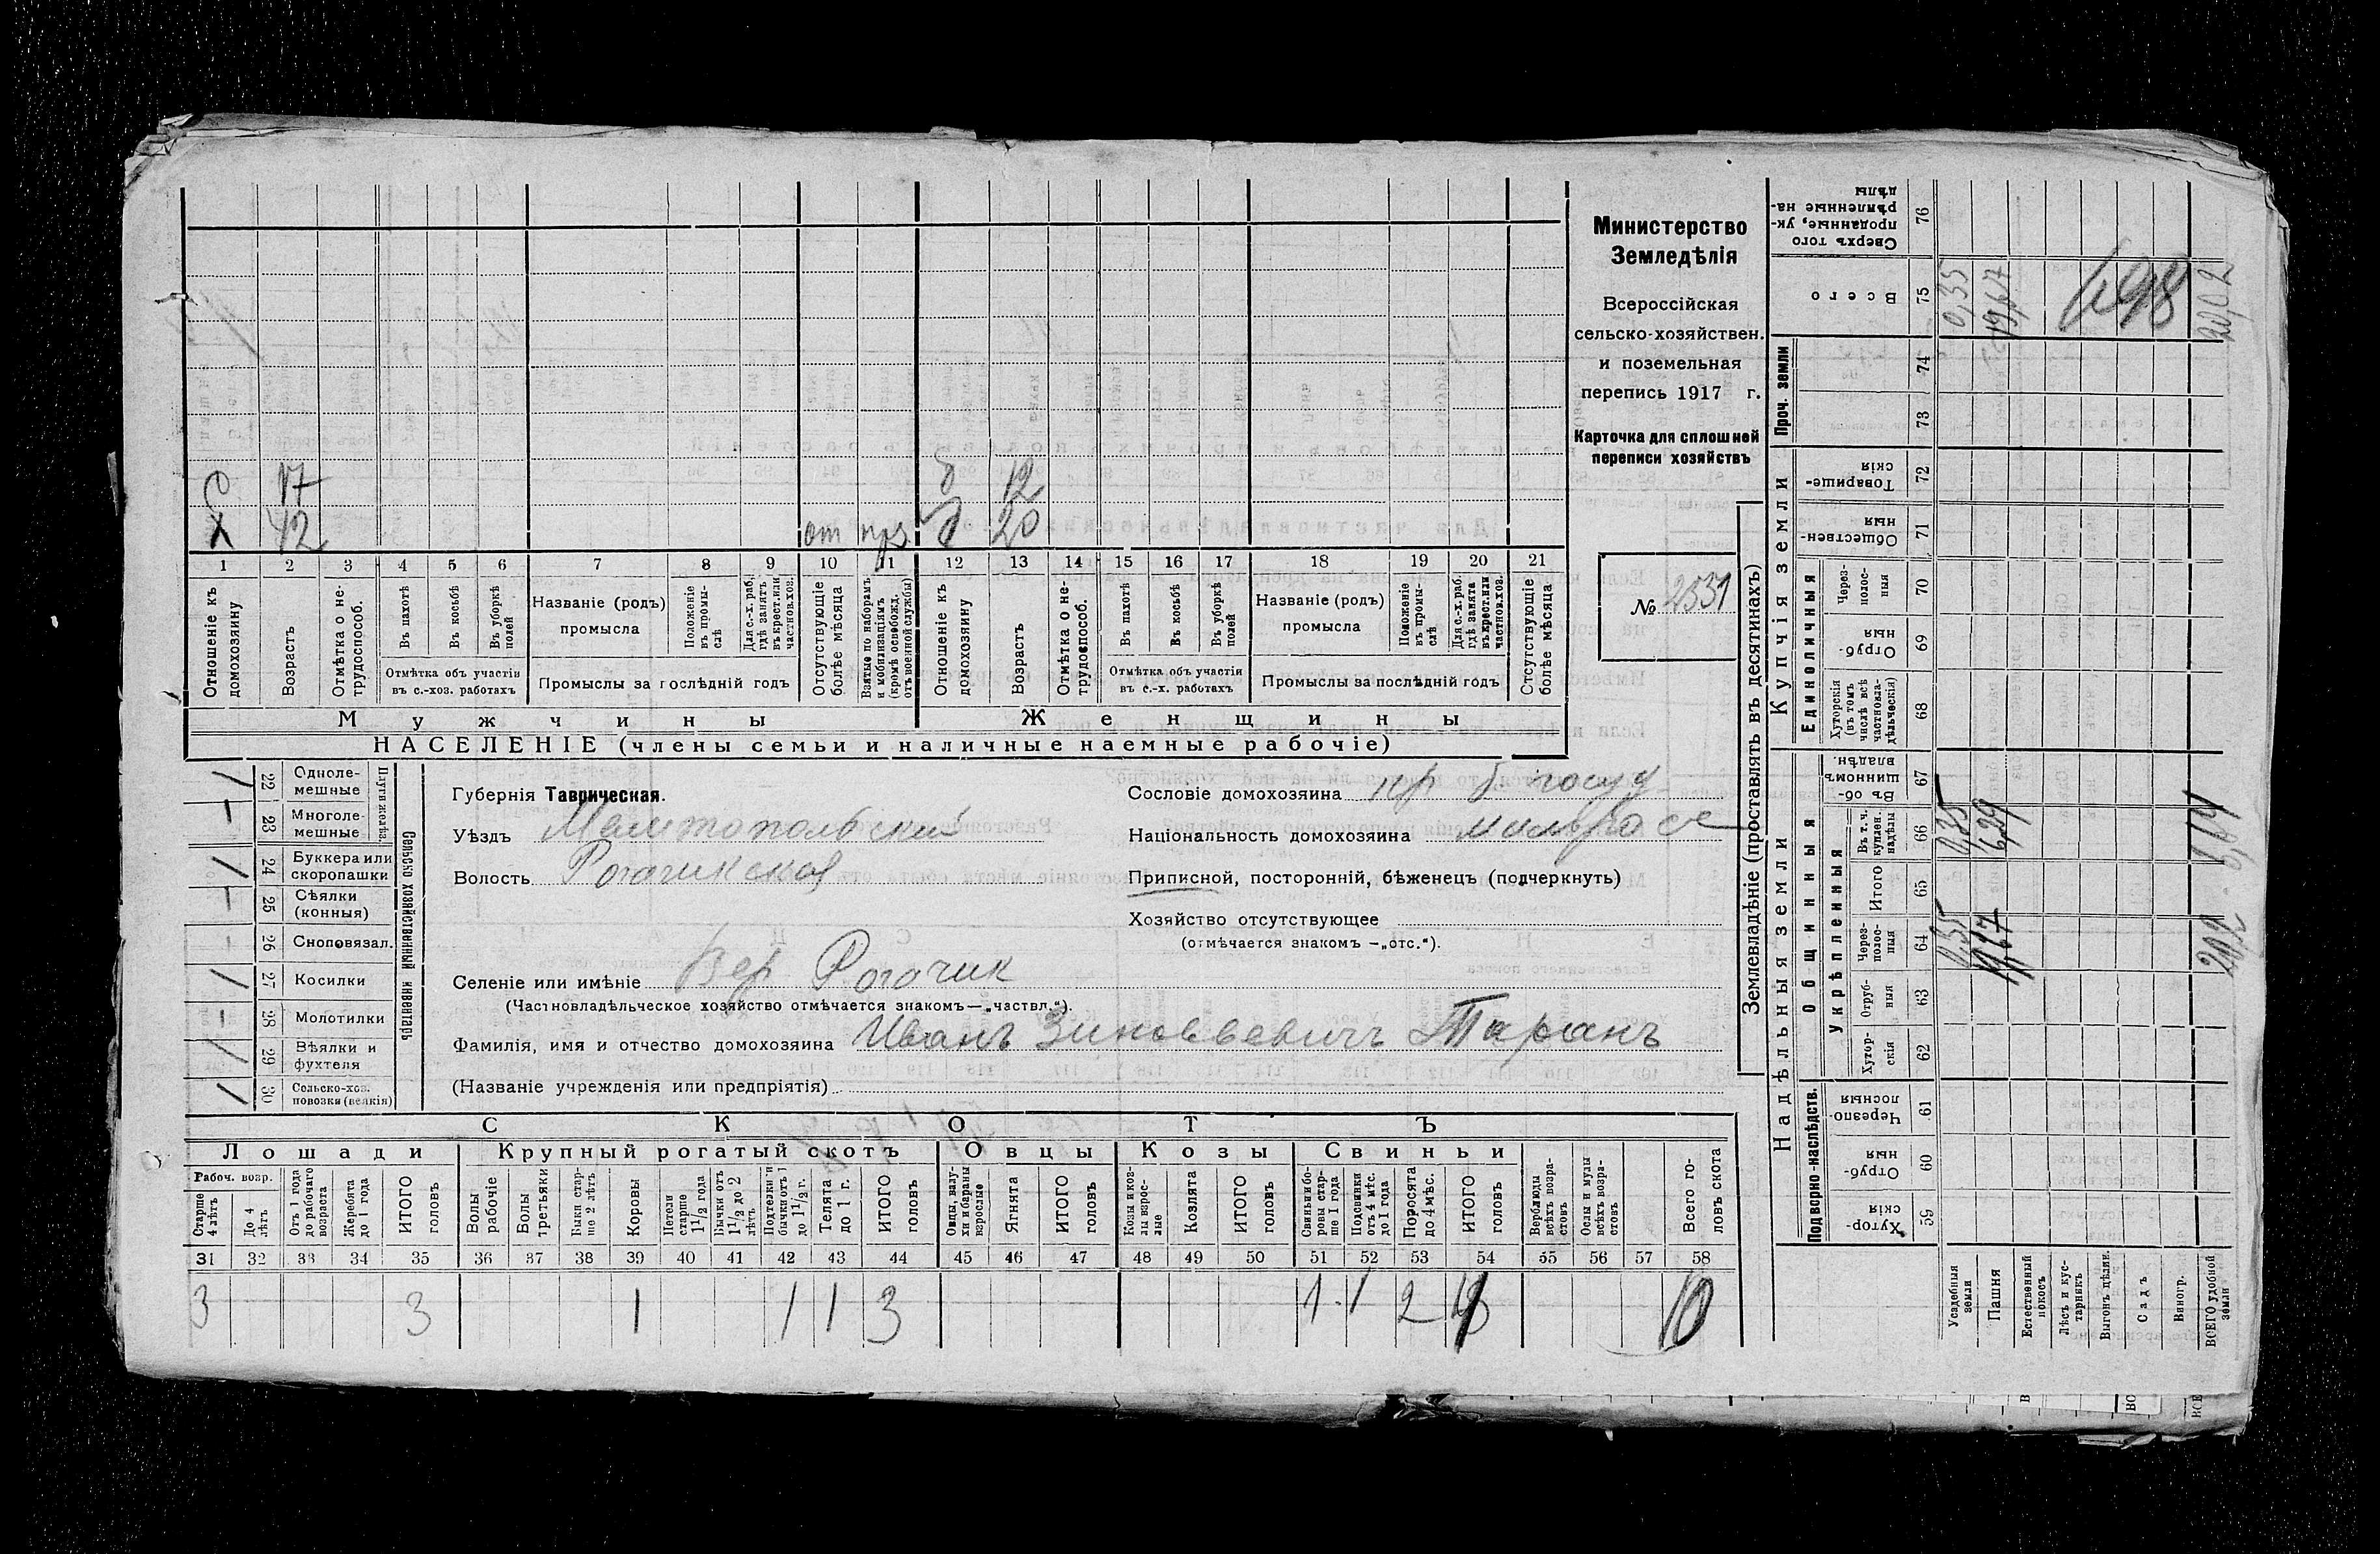 Министерство
Земледѣлія
Всероссійская
сельско-хозяйствен.
и поземельная
перепись 1917 г.
Карточка для сплошней
переписи хозяйствъ
№ 2531
С 17 д 12
Х 42 от прз д 20
1 2 3 4 5 6 7 8 9 10 11 12 13 14 15 16 17 18 19 20 21
Отношеніе къ домохозяину
Возрастъ
Отмѣтка о не-трудоспособ.
Въ пахотѣ
Въ косьбѣ
Въ уборкѣ полей
Отмѣтка объ участіи въ с.-хоз. работахъ
Названіе (родъ) промысла
Положеніе въ промы-слѣ
Для с.-х. раб., гдѣ занятъ въ крест. или частнов. хоз.
Промыслы за послѣдній годъ
Отсутствующіе болѣе мѣсяца
Взятые по наборамъ и мобилизаціямъ (кромѣ освобожд. отъ военной службы)
Отношеніе къ домохозяину
Возрастъ
Отмѣтка о не-трудоспособ.
Въ пахотѣ
Въ косьбѣ
Въ уборкѣ полей
Отмѣтка объ участіи въ с.-х. работахъ
Названіе (родъ) промысла
Положеніе въ промы-слѣ
Для с.-х. раб. гдѣ занята въ крест. или частнов. хоз.
Промыслы за послѣдній годъ
Отсутствующіе болѣе мѣсяца
Мужчины Женщины
НАСЕЛЕНІЕ (члены семьи и наличные наемные рабочіе)
Сельско хозяйственный инвентарь
Плуги желѣз.
1 22 Однолемешные
– 23 Многолемешные
1 24 Буккера или скоропашки
– 25 Сѣялки (конныя)
- 26 Сноповязал.
1 27 Косилки
- 28 Молотилки
1 29 Вѣялки и фухтеля
1 30 Сельско-хоз. повозки (всякія)
Губернія Таврическая.
Уѣздъ Мелитопольскій
Волость Рогачикская
Селеніе или имѣніе Вер Рогачик
(Частновладѣльческое хозяйство отмѣчается знакомъ—„частвл.“).
Фамилія, имя и отчество домохозяина Иванъ Зиновьевичъ Таранъ
(Названіе учрежденія или предпріятія)
Сословіе домохозяина кр б. госуд
Національность домохозяина малросс
Приписной, посторонній, бѣженецъ (подчеркнуть)
Хозяйство отсутствующее
(отмѣчается знакомъ —„отс.“).
СКОТЪ
Лошади Крупный рогатый скотъ Овцы Козы Свиньи
Рабоч. возр.
Старше 4 лѣтъ
До 4 лѣтъ
Отъ 1 года до рабочаго возраста
Жеребята до 1 года
ИТОГО головъ
Волы рабочіе
Волы третьяки
Быки старше 2 лѣтъ
Коровы
Нетели старше 1 1/2 года
Бычки отъ 1 1/2 до 2 лѣтъ
Подтелки и бычки отъ 1 до 1 1/2 г.
Телята до 1 г.
ИТОГО головъ
Овцы, валухи и бараны взрослые
Ягнята
ИТОГО головъ
Козы и козлы взрослые
Козлята
ИТОГО головъ
Свиньи и боровы старше 1 года
Подсвинки отъ 4 мѣс. до 1 года
Поросята до 4 мѣс.
ИТОГО головъ
Верблюды всѣхъ возрастовъ
Ослы и мулы всѣхъ возрастовъ
Всего головъ скота
31 32 33 34 35 36 37 38 39 40 41 42 43 44 45 46 47 48 49 50 51 52 53 54 55 56 57 58
3 3 1 1 1 3 1 1 2 4 10
Землевладѣніе (проставлять въ десятинахъ)
Надѣльныя земли
Купчія земли
Проч. земли
Подворно-наслѣдств.
Общинныя
Укрѣпленныя
Единоличныя
Сверхъ того проданные, укрѣпленные надѣлы 76
Всего 75 0,35 19,67 20,02
698
74
73
Товарищескія 72
Общественныя 71
Черезполосныя 70
Отрубныя 69
Хуторскія (въ томъ числѣ всѣ частновладѣльческія) 68
Въ общинномъ владѣн. 67
Въ т. ч. куплен. надѣлы 66 0,35 6,29 6,64
Итого 65
Черезполосныя 64 0,35 19,67 20,02
Отрубныя 63
Хуторскія 62
Черезполосныя 61
Отрубныя 60
Хуторскія 59
Усадебныя земли
Пашня
Естественный покосъ
Лѣсъ и кустарникъ
Выгонъ цѣлин.
Садъ
Виногр.
ВСЕГО удобной земли